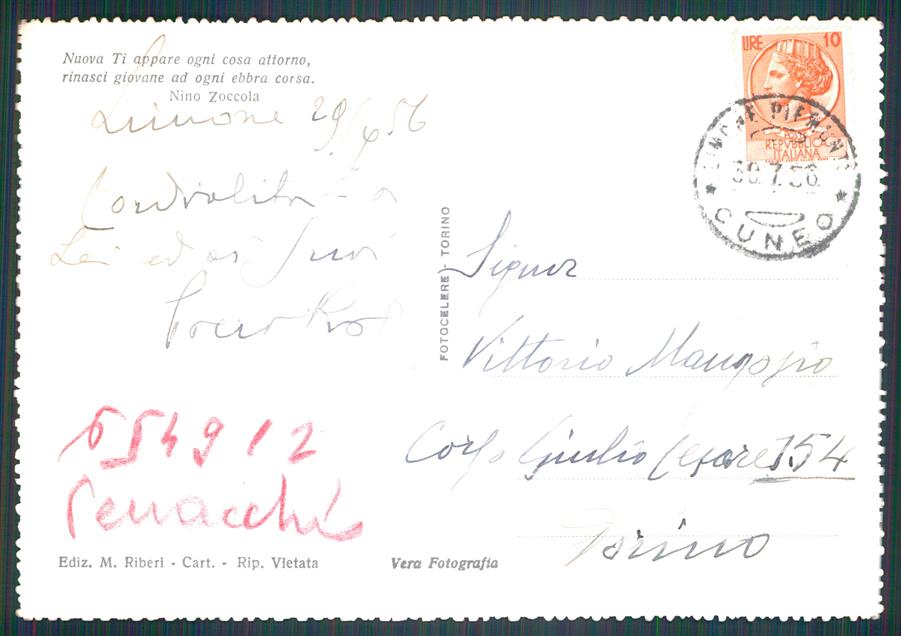 Nuova Ti appare ogni cosa attorno,
rinasci giovane ad ogni ebbra corsa.
Nino Zoccola
Limone 29/7/56
Cordialità a
Lei ed ai Suoi
LIRE 10
REPVBBLICA
ITALIANA
LIMONE PIEMONTE
30.7.56
CUNEO
FOTOCELERE - TORINO
Signor
Vittorio
Corso Giulio Cesare 154
Torino
554912
Pennacchi
Ediz. M. Riberi - Cart. - Rip. Vietata
Vera Fotografia